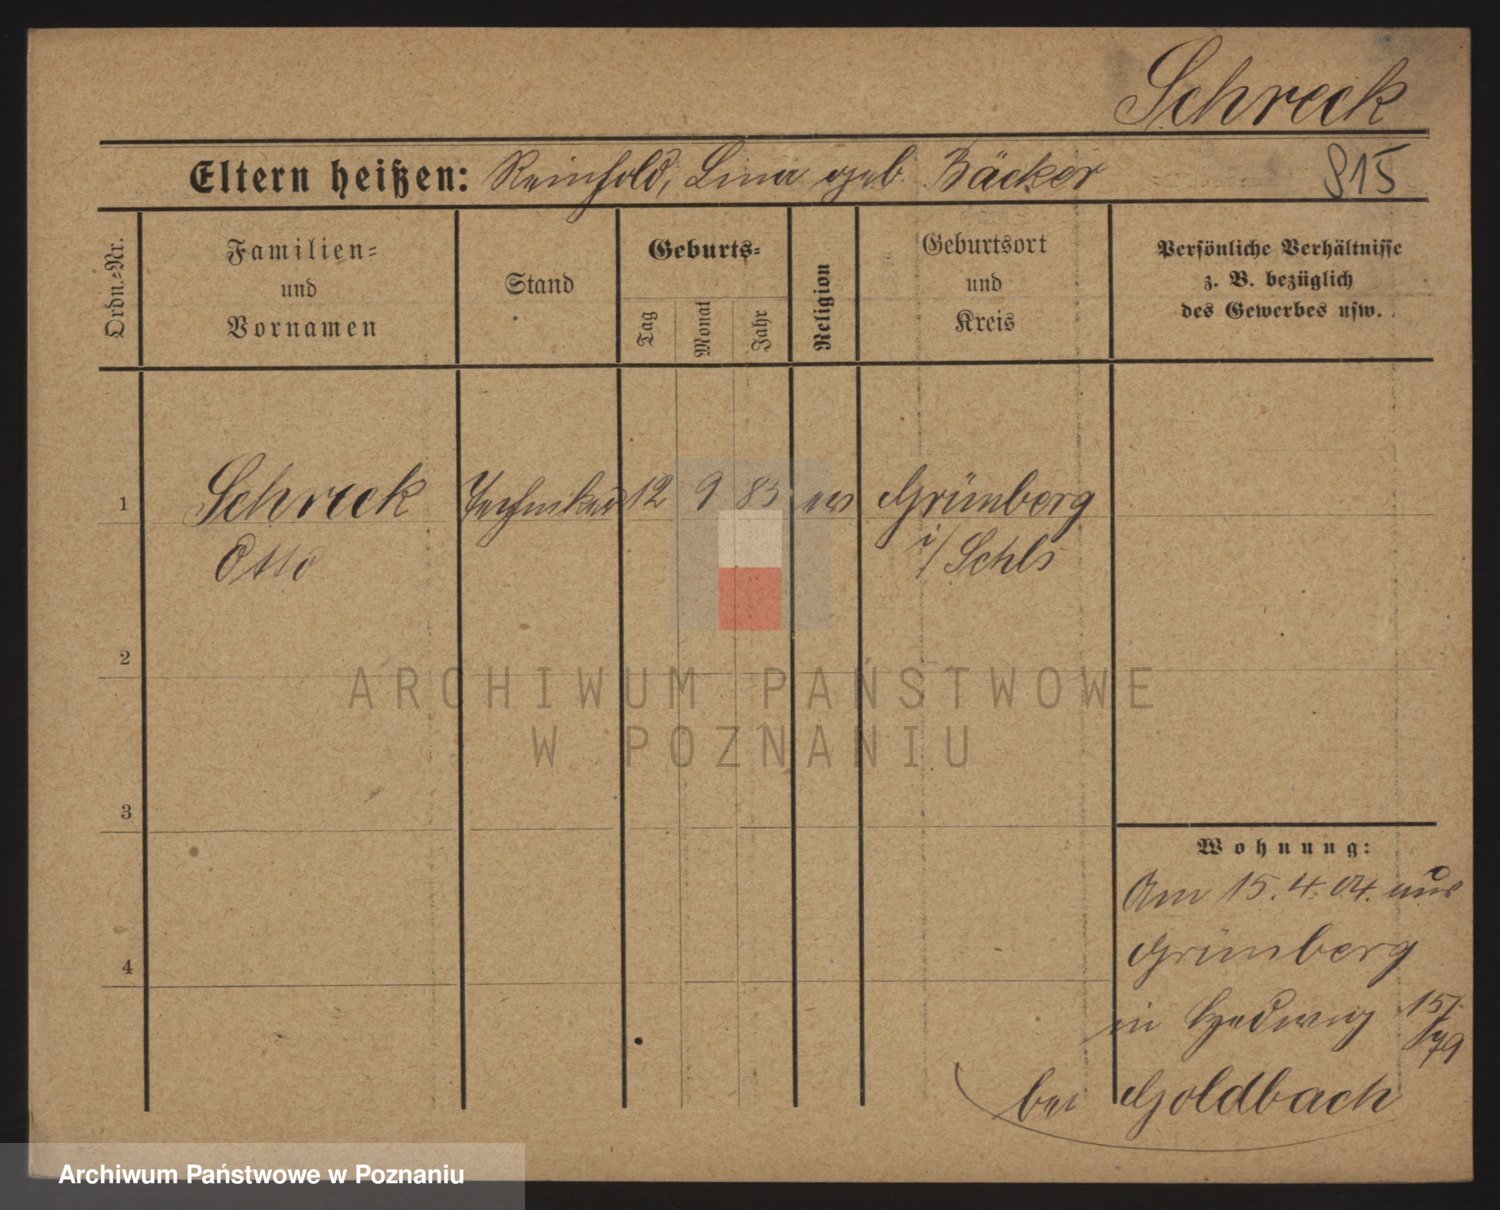 Schreck
Eltern heißen: Reinhold, Lina geb. Bäcker 815
Ordn.-Nr.
Familien-
und
Vornamen
Stand
Geburts-
Tag
Monat
Jahr
Religion
Geburtsort
und
Kreis
Persönliche Verhältnisse
z. B. bezüglich
des Gewerbes usw.
1 Schreck Techniker 12 9 83 ev Grünberg
Otto i/Schls
2
3
4
Wohnung:
Am 15.4.04. aus
Grünberg
in Hedwig 15/
bei Goldbach
ARCHIWUM PAŃSTWOWE
W POZNANIU
Archiwum Państwowe w Poznaniu